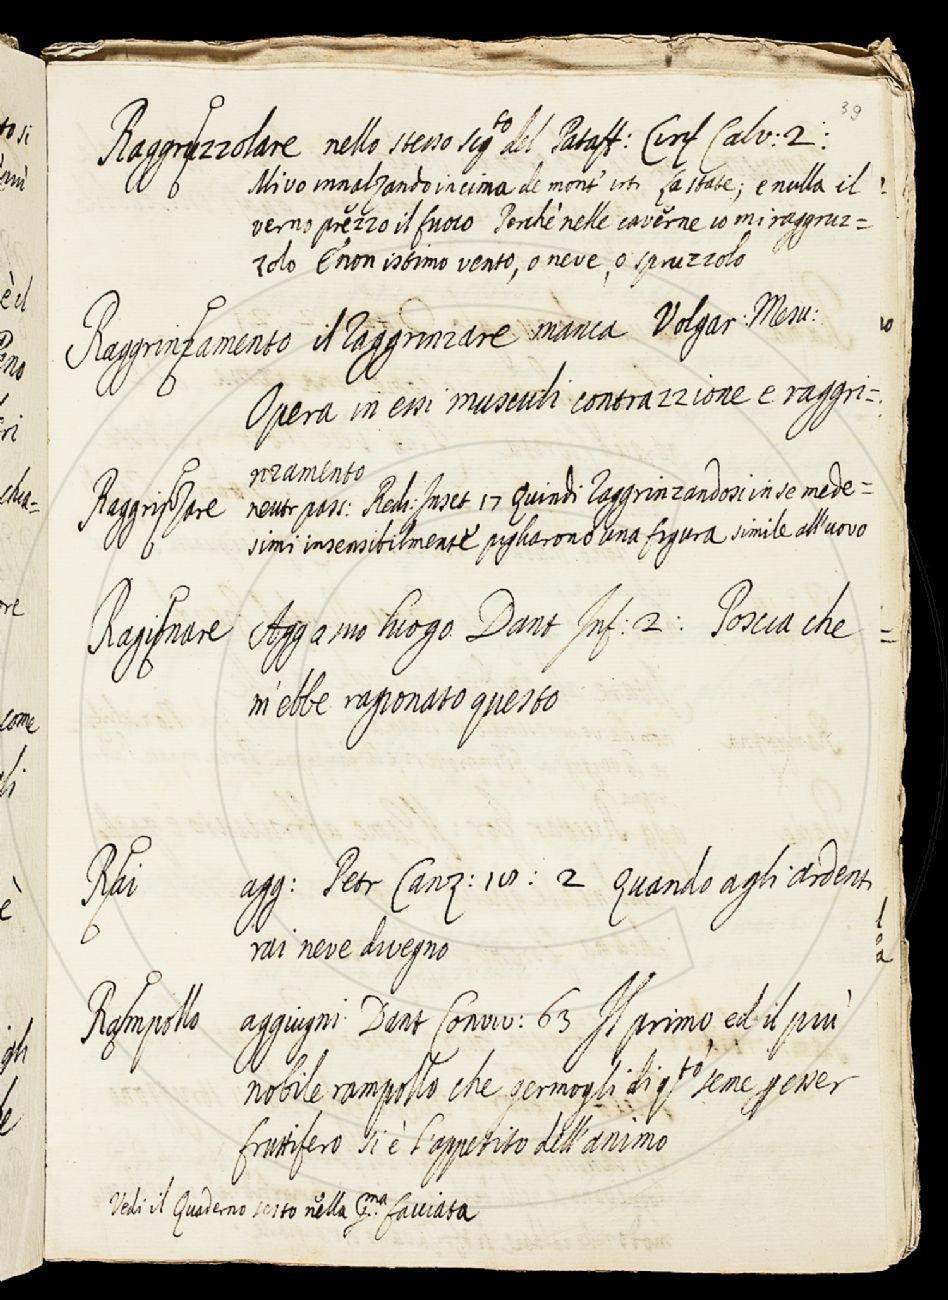 39
Raggruzzolare nello stesso sig.to del Pataff: Cirif Calv: 2:
Mivo innalzando in cima de mont' la state; e nulla il
verno prezzo il fuoco Perchè nelle caverne io mi raggruz=
zolo E non istimo vento, o neve, o spruzzolo
Raggrinzamento il Raggrinzare manca Volgar: Mesu:
Opera in essi musculi contrazzione e raggri=
nzamento
Raggrinzare neutr pass: Redi: Inset 17 Quindi Raggrinzandosi in se mede=
simi insensibilmente pigliarono una figura simile all'uovo
Ragionare Agg a suo luogo. Dant Inf: 2: Poscia che
m'ebbe ragionato questo
Rai agg: Petr Canz: : 2 Quando agli ardenti
rai neve divegno
Rampollo aggiugni Dant Conviv: 63 Il primo ed il più
nobile rampollo che germogli di q.to seme p esser
fruttifero si è l'appetito dell'animo
Vedi il Quaderno sesto nella p.ma facciata